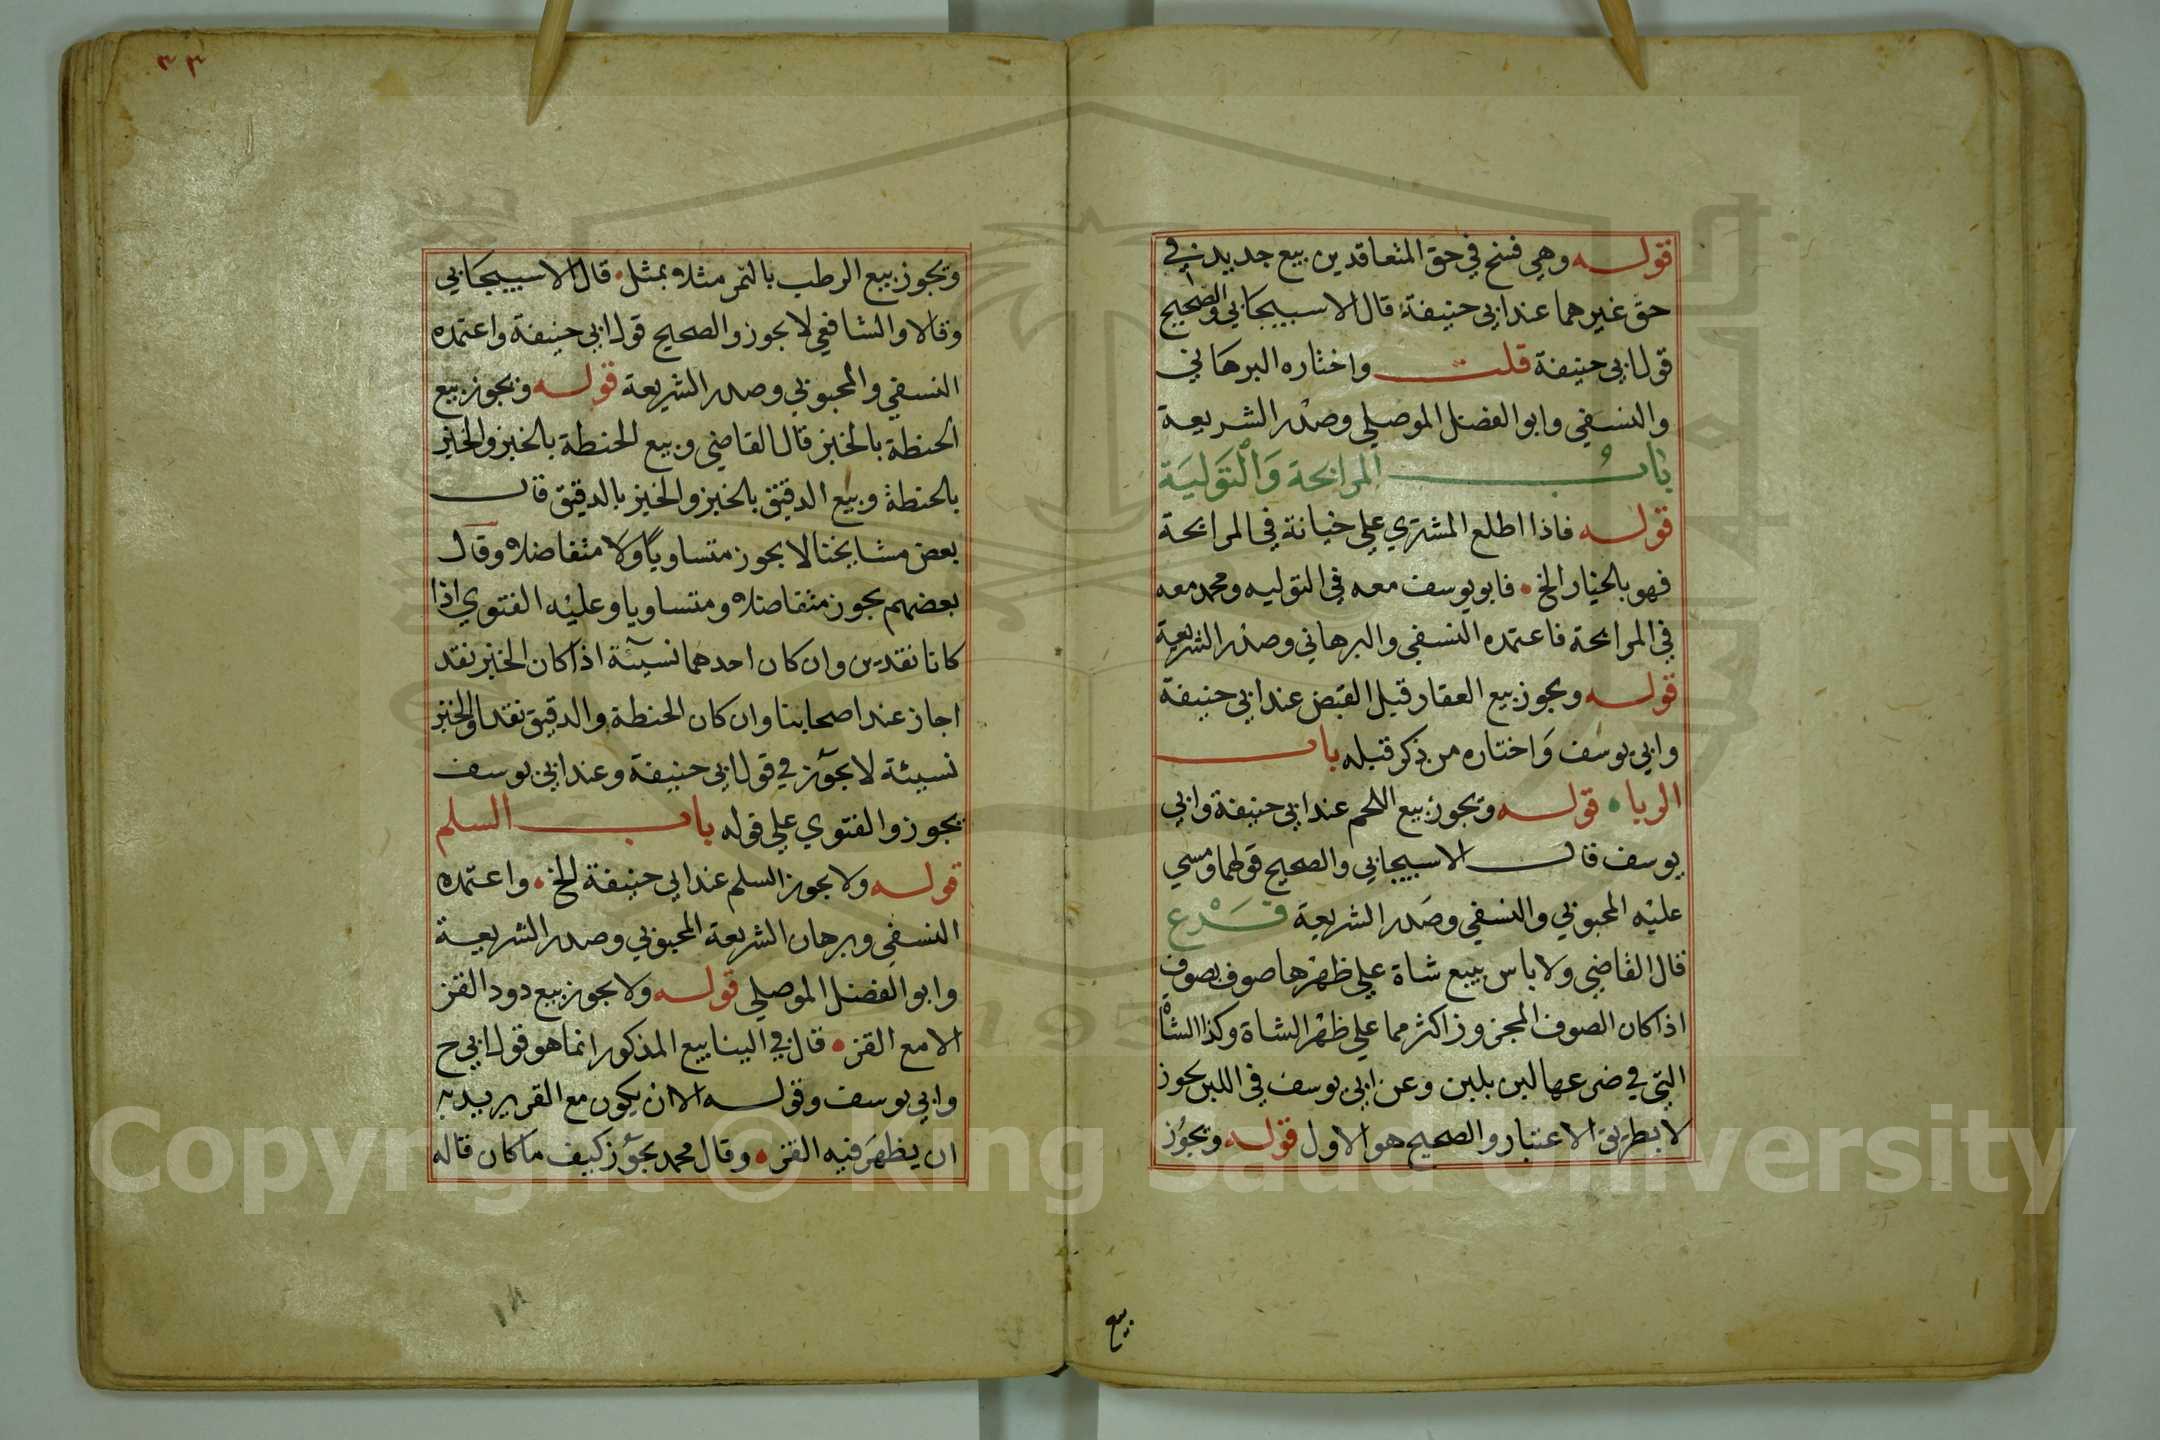 قوله وهي فسخ في حق المتعاقدين بيع جديد في
حق غيرهما عند ابي حنيفة قال الاسبيجابي والصحيح
قول ابي حنيفة قلت واختاره البرهاني
والنسفي وابو الفضل الموصلي وصدر الشريعة
باب المرابحة والتولية
قوله فاذا اطلع المشتري علي خيانة في المرابحة
فهو بالخيار الخ فابو يوسف معه في التوليه ومحمد معه
في المرابحة فاعتمده النسفي والبرهاني وصدر الشريعة
قوله ويجوز بيع العقار قبل القبض عند ابي حنيفة
وابي يوسف واختاره من ذكر قبله باب
الربا قوله ويجوز بيع اللحم عند ابي حنيفة وابي
يوسف قال الاسبيجابي والصحيح قولهما ومسي
عليه المحبوبي والنسفي وصدر الشريعة فرع
قال القاضي ولا باس ببيع شاة علي ظهرها صوف بصوف
اذا كان الصوف المجزوز اكثر مما علي ظهر الشاة وكذا الشاة
التي في ضرعها لبن بلبن وعن ابي يوسف في اللبن يجوز
لا بطريق الاعتبار والصحيح هو الاول قوله ويجوز
بيع
٣٣
ويجوز بيع الرطب بالتمر مثلا بمثل قال الاسبيجابي
وقالا والشافعي لا يجوز والصحيح قول ابي حنيفة واعتمده
النسفي والمحبوبي وصدر الشريعة قوله ويجوز بيع
الحنطة بالخبز قال القاضي وبيع الحنطة بالخبز والخبز
بالحنطة وبيع الدقيق بالخبز والخبز بالدقيق قال
بعض مشايخنا لا يجوز متساويا ولا متفاضلا وقال
بعضهم يجوز متفاضلا ومتساويا وعليه الفتوي اذا
كانا نقدين وان كان احدهما نسيئة اذا كان الخبز نقد
اجاز عند اصحابنا وان كان الحنطة والدقيق نقدا والخبز
نسيئة لا يجوز في قول ابي حنيفة وعند ابي يوسف
يجوز والفتوي علي قوله باب السلم
قوله ولا يجوز السلم عند ابي حنيفة الخ واعتمده
النسفي وبرهان الشريعة المحبوبي وصدر الشريعة
وابو الفضل الموصلي قوله ولا يجوز بيع دود القز
الا مع القز قال في الينابيع المذكور انما هو قول ابي ح
وابي يوسف وقوله الا ان يكون مع القز يريد به
ان يظهر فيه القز وقال محمد يجوز كيف ما كان قاله
Copyright © King Saud University